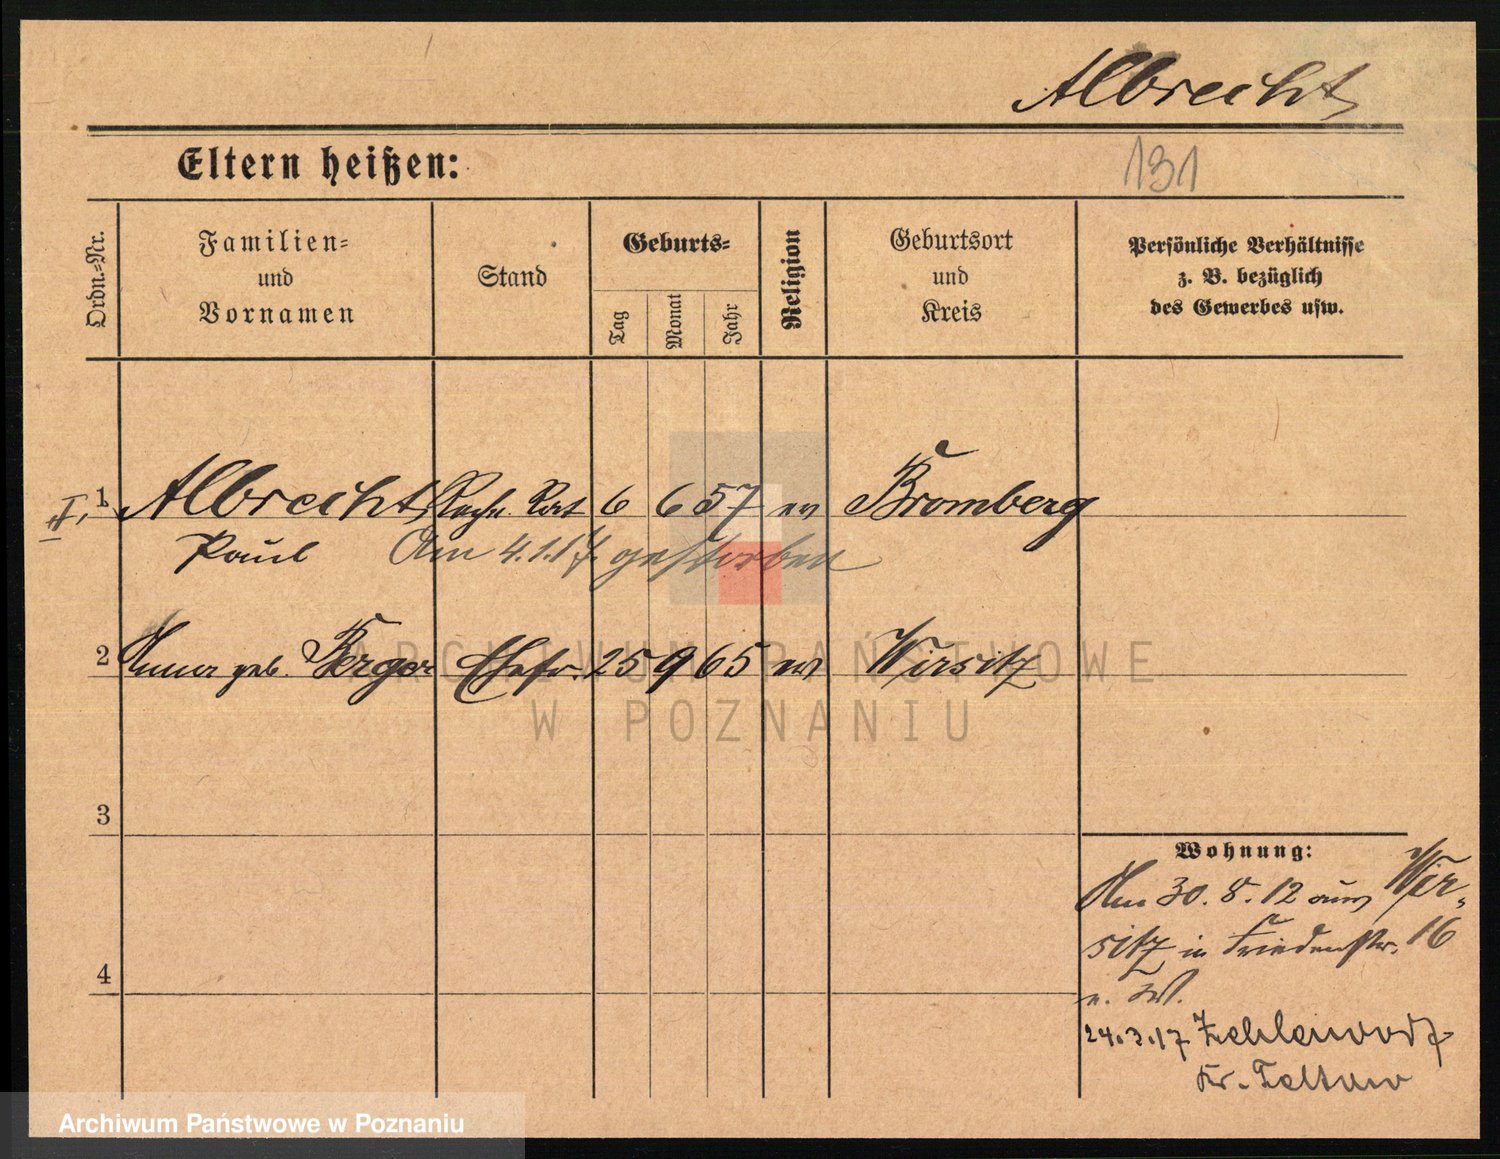 Albrecht
131
Eltern heißen:
Ordn.-Nr.
Familien-
und
Vornamen
Stand
Geburts-
Tag
Monat
Jahr
Religion
Geburtsort
und
Kreis
Persönliche Verhältnisse
z. B. bezüglich
des Gewerbes usw.
1 Albrecht, Rechn. Rat 6 6 57 ev Bromberg
Paul Am 4.1.17. gestorben
2 Anna geb. Berger Ehefr. 25 9 65 ev Wirsitz
3
4
Wohnung:
Am 30. 8. 12 aus Wir-
sitz in Friedenstr. 16
24.3.17 Zehlendorf
Kr. Teltow
ARCHIWUM PAŃSTWOWE
W POZNANIU
Archiwum Państwowe w Poznaniu